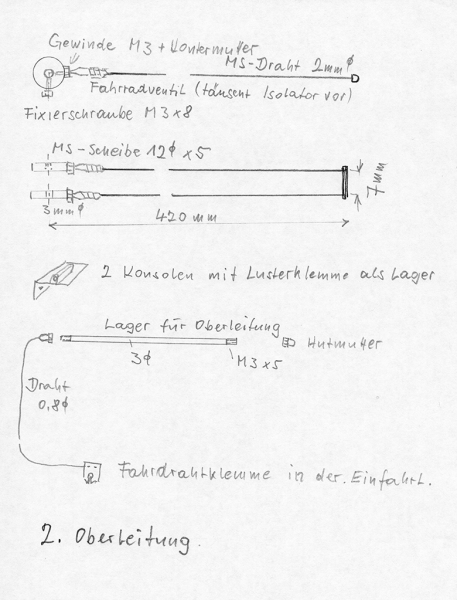 Gewinde M3 + Kontermutter
MS-Draht 2mm⌀
Fahrradventil (täuscht Isolator vor)
Fixierschraube M3x8
MS-Scheibe 12⌀ x5
7mm
3mm⌀
420 mm
2 Konsolen mit Lusterklemme als Lager
Lager für Oberleitung
3⌀
M3x5
Hutmutter
Draht
0,8⌀
Fahrdrahtklemme in der. Einfahrt.
2. Oberleitung.